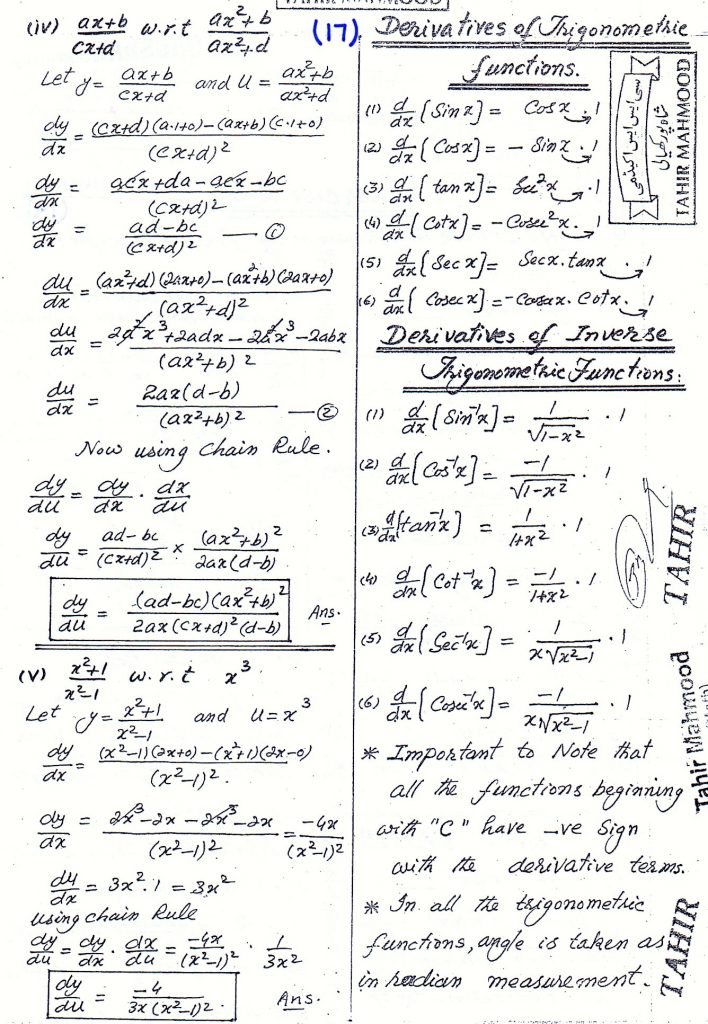 (iv) ax+b/cx+d w.r.t ax²+b/ax²+d
Let y = ax+b/cx+d and U = ax²+b/ax²+d
dy/dx = (cx+d)(a·1+0)-(ax+b)(c·1+0)/(cx+d)²
dy/dx = acx+da-acx-bc/(cx+d)²
dy/dx = ad-bc/(cx+d)² — ①
du/dx = (ax²+d)(2ax+0)-(ax²+b)(2ax+0)/(ax²+d)²
du/dx = 2a²x³+2adx-2a²x³-2abx/(ax²+b)²
du/dx = 2ax(d-b)/(ax²+b)² — ②
Now using Chain Rule.
dy/du = dy/dx · dx/du
dy/du = ad-bc/(cx+d)² × (ax²+b)²/2ax(d-b)
dy/du = (ad-bc)(ax²+b)²/2ax(cx+d)²(d-b) Ans.
(V) x²+1/x²-1 w.r.t x³
Let y = x²+1/x²-1 and U = x³
dy/dx = (x²-1)(2x+0)-(x²+1)(2x-0)/(x²-1)².
dy/dx = 2x³-2x-2x³-2x/(x²-1)² = -4x/(x²-1)²
du/dx = 3x².1 = 3x²
using chain Rule
dy/du = dy/dx · dx/du = -4x/(x²-1)² · 1/3x²
dy/du = -4/3x(x²-1)². Ans.
(17)
Derivatives of Trigonometric
functions.
(1) d/dx [Sinx] = Cosx.1
(2) d/dx [Cosx] = - Sinx.1
(3) d/dx [tanx] = Sec²x.1
(4) d/dx [Cotx] = -Cosec²x.1
(5) d/dx [Secx] = Secx.tanx.1
(6) d/dx [Cosecx] = -Cosecx.Cotx.1
Derivatives of Inverse
Trigonometric Functions:
(1) d/dx [Sin⁻¹x] = 1/√1-x² · 1
(2) d/dx [Cos⁻¹x] = -1/√1-x² · 1
(3) d/dx [tan⁻¹x] = 1/1+x² · 1
(4) d/dx [Cot⁻¹x] = -1/1+x² · 1
(5) d/dx [Sec⁻¹x] = 1/x√x²-1 · 1
(6) d/dx [Cosec⁻¹x] = -1/x√x²-1 · 1
* Important to Note that
all the functions beginning
with "C" have -ve Sign
with the derivative terms.
* In all the trigonometric
functions, angle is taken as
in radian measurement.
سی ایس ایس اکیڈمی
TAHIR MAHMOOD
TAHIR
Tahir Mahmood
TAHIR